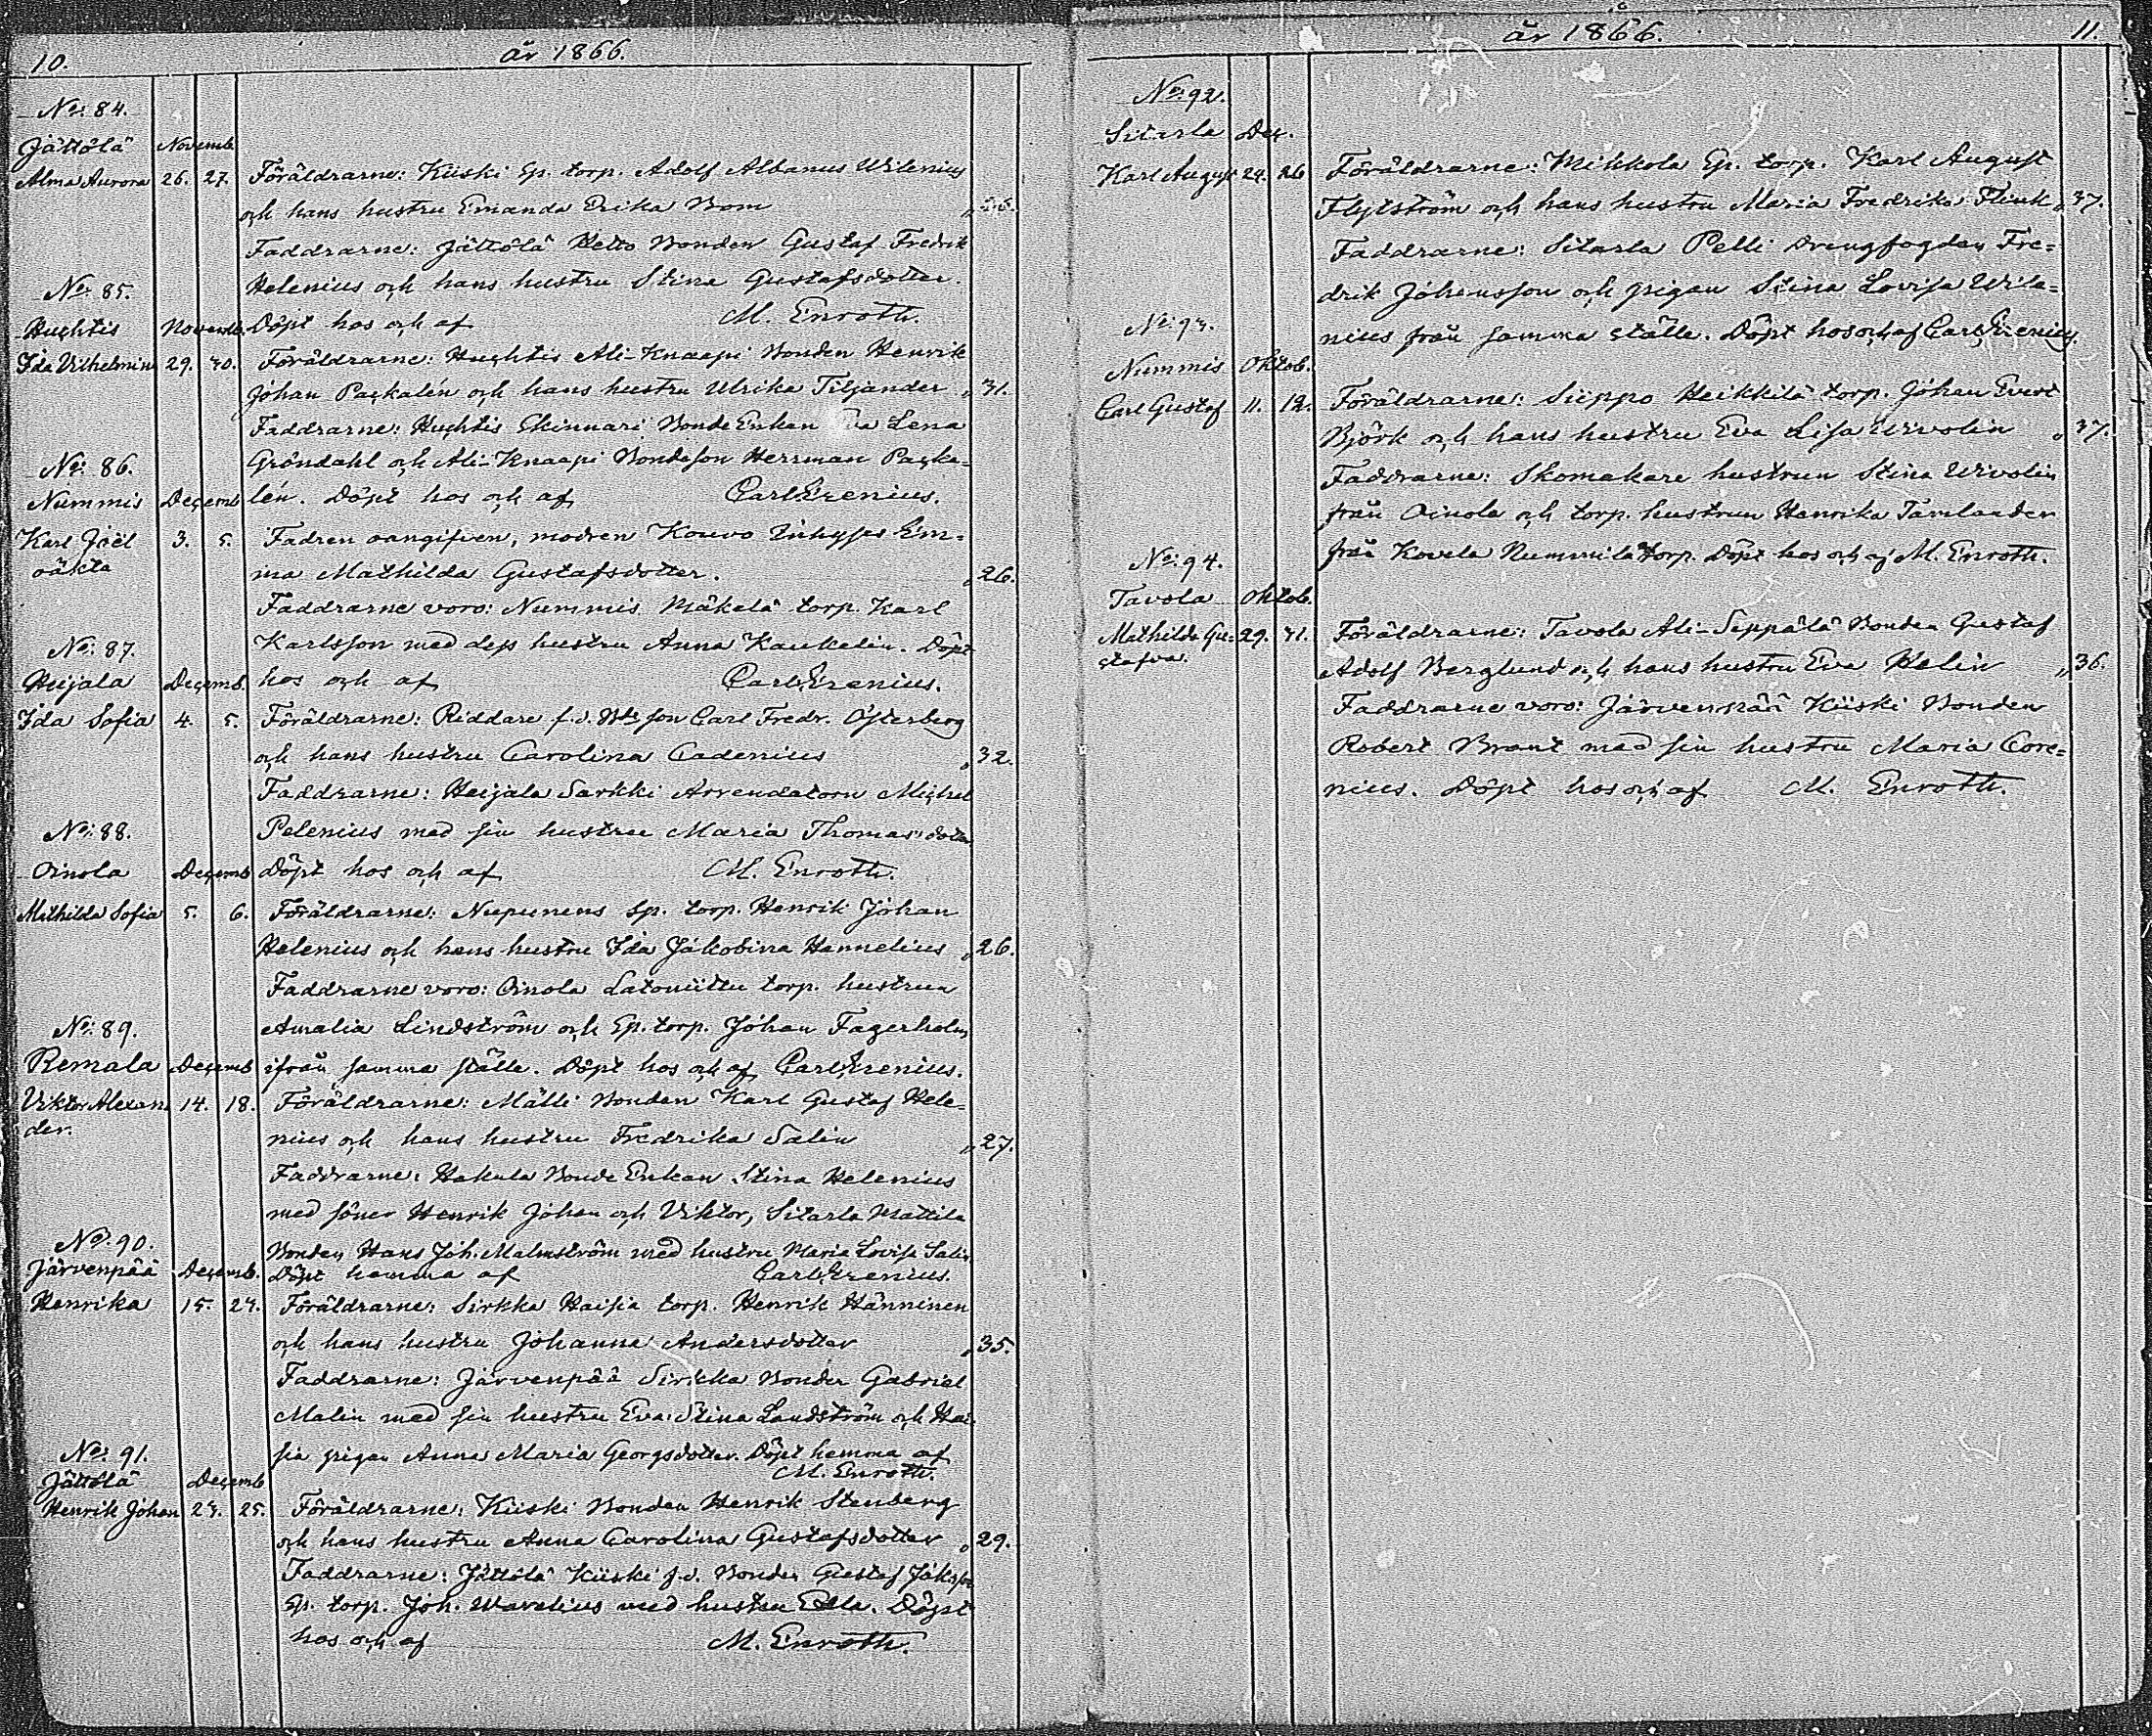 10.
år 1866.
No: 84.
Jättölä Novemb.
Alma Aurora 26. 27. Föräldrarne: Kiiski Sp. torp. Adolf Albanus Wilenius
och hans hustru Emanda Erika Bom
Faddrarne: Jättölä Hetto Bonden Gustaf Fredrik
Helenius och hans hustru Stina Gustafsdotter.
Döpt hos och af M. Enroth.
No: 85.
Huhtis Novemb.
Ida Vilhelmina 29. 30. Föräldrarne: Huhtis Ali-Knaapi Bonden Henrik
Johan Packalén och hans hustru Ulrika Tiljander „ 31.
Faddrarne: Huhtis Skinnari Bonde Enkan Eva Lena
Gröndahl och Ali-Knaapi Bondeson Herrman Packa-
lén. Döpt hos och af Carl Grenius.
No: 86.
Nummis Decemb.
Karl Joël 3. 5. Fadren oangifven, modren Kouvo Inhyses Em-
oäkta
ma Mathilda Gustafsdotter. „ 26.
Faddrarne voro: Nummis Mäkelä torp. Karl
Karlsson med dess hustru Anna Kaukelin. Döpt
hos och af Carl Grenius.
No: 87.
Hujala Decemb.
Ida Sofia 4. 5. Föräldrarne: Riddare f.d. Bde son Carl Fredr. Österberg
och hans hustru Carolina Cadenius „ 32.
Faddrarne: Heijala Sarkki Arrendatorn Michel
Pelenius med sin hustru Maria Thomasdoter
Döpt hos och af M. Enroth.
No: 88.
Oinola Decemb
Mathilda Sofia 5. 6. Föräldrarne: Nupunens Sp. torp. Henrik Johan
Helenius och hans hustru Ida Jakobina Hannelius „ 26.
Faddrarne voro: Oinola Latoniittu torp. hustrun
Amalia Lindström och Sp. torp. Johan Fagerholm
ifrån samma ställe. Döpt hos och af Carl Grenius.
No: 89.
Remala Decemb
Viktor Alexan- 14. 18. Föräldrarne: Mälli Bonden Karl Gustaf Hele-
der.
nius och hans hustru Fredrika Salin „ 27.
Faddrarne: Hakula Bonde Enkan Stina Helenius
med söner Henrik Johan och Viktor, Sitarla Mattila
Bonden Hans Joh. Malmström med hustru Maria Lovisa Salin.
Döpt hemma af Carl Grenius.
No: 90.
Järvenpää Decemb.
Henrika 15. 24. Föräldrarne: Sirkka Haisia torp. Henrik Hänninen
och hans hustru Johanna Andersdotter „ 35.
Faddrarne: Järvenpää Sirkka Bonden Gabriel
Malin med sin hustru Eva Stina Landström och Hai-
sia pigan Anna Maria Georgsdotter. Döpt hemma af
M. Enroth.
No: 91.
Jättölä Decemb
Henrik Johan 23. 25. Föräldrarne: Kiiski Bonden Henrik Stenberg
och hans hustru Anna Carolina Gustafsdotter „ 29.
Faddrarne: Jättölä Kiiski f.d. Bonden Gustaf Jakssn
Sp. torp. Joh. Warelius med hustru Edla. Döpt
hos och af M. Enroth.
år 1866.
11.
No: 92.
Sitarla Dec.
Karl August 24. 26 Föräldrarne: Mikkola Sp. torp. Karl August
Flytström och hans hustru Maria Fredrika Flink „ 37.
Faddrarne: Sitarla Pelli Drengfogden Fre-
drik Johansson och pigan Stina Lovisa Wile-
nius från samma ställe. Döpt hos och af Carl Grenius.
No: 93.
Nummis Oktob.
Carl Gustaf 11. 12. Föräldrarne: Sieppo Heikkilä torp. Johan Evert
Björk och hans hustru Eva Lisa Urvolin „ 37.
Faddrarne: Skomakare hustrun Stina Urvolin
från Oinola och torp. hustrun Henrika Tamlander
från Kovela Nummila torp. Döpt hos och af M. Enroth.
No: 94.
Tavola Oktob.
Mathilda Gu- 29. 31. Föräldrarne: Tavola Ali-Seppälä Bonden Gustaf
stafva.
Adolf Berglund och hans hustru Eva Helin „ 36.
Faddrarne voro: Järvenpää Kiiski Bonden
Robert Brant med sin hustru Maria Core-
nius. Döpt hos och af M. Enroth.